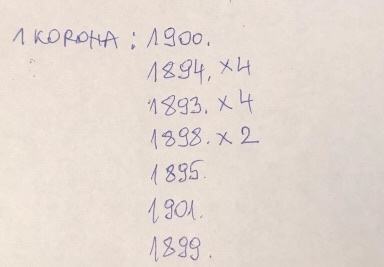 1 КОРОНА : 1900.
1894. x4
1893. x 4
1898. x 2
1895.
1901.
1899.